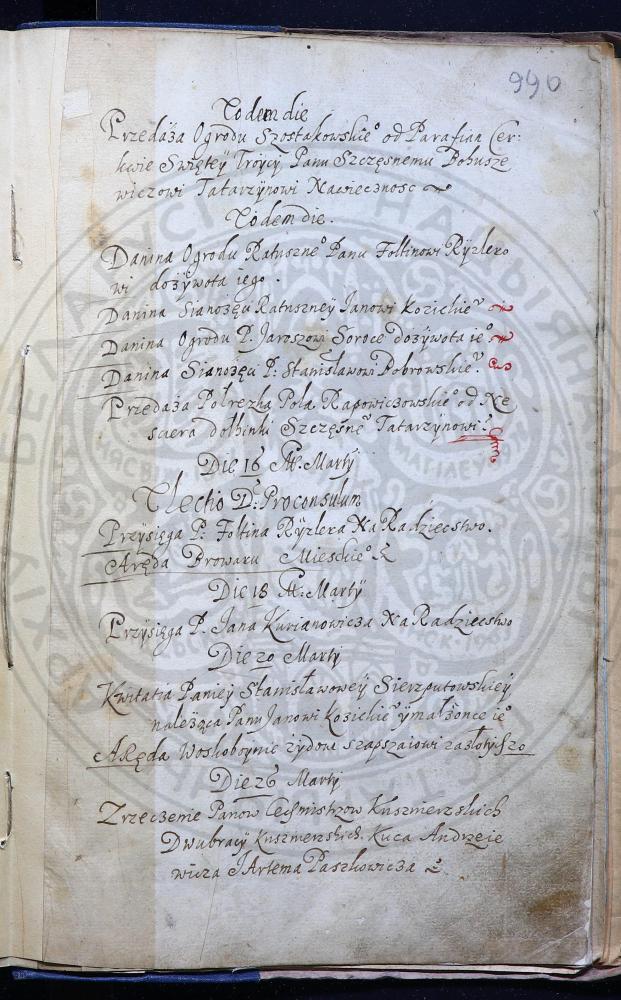 990
Eodem die
Przedaża Ogrodu Szostakowskieo od Parafian Cer:
kwie Swiętey Troycy Panu Szczęsnemu Bohusze
wiczowi Tatarzynowi Nawiecznosc
Eodem die.
Danina Ogrodu Ratuszneo Panu Foltinowi Ryzlero
wi dożywota iego.
Danina Sianożęci Ratuszney Janowi Kozickieu
Danina Ogrodu P. Jaroszowi Soroce dożywota ieo
Danina Sianożęci P: Stanisławowi Dobrowskieu.
Przedaża Połrezka Pola Rapowiczowskieo od Ne
sciera dolhinki Szczęsneu Tatarzynowi
Die 16 M. Martÿ
Electio D: Proconsulum
Przysięga P: Foltina Ryzlera Na Radziectwo.
Aręda Browaru Mieskieo
Die 18 M: Martÿ
Przysięga P. Jana Kurianowicza Na Radziectwo
Die 20 Martÿ
Kwitatia Paniey Stanisławowey Sierzputowskiey
należąca Panu Janowi Kozickieu y małżonce ieo
Aręda Woskoboynie żydow
Die 26 Martÿ
Zrzeczenie Panow Cechmistrzow Kusznierskich
Dwubracÿ Kusznierskich. Kuca Andrzeie
wicza J Artema Paszkowicza